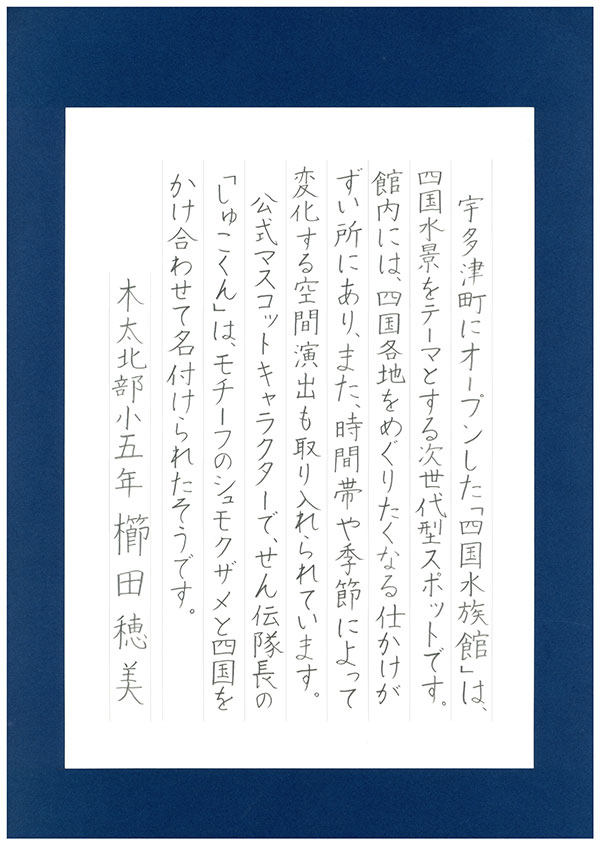 宇多津町にオープンした「四国水族館」は、
四国水景をテーマとする次世代型スポットです。
館内には、四国各地をめぐりたくなる仕かけが
ずい所にあり、また、時間帯や季節によって
変化する空間演出も取り入れられています。
公式マスコットキャラクターで、せん伝隊長の
「しゅこくん」は、モチーフのシュモクザメと四国を
かけ合わせて名付けられたそうです。
木太北部小五年 櫛田穂美